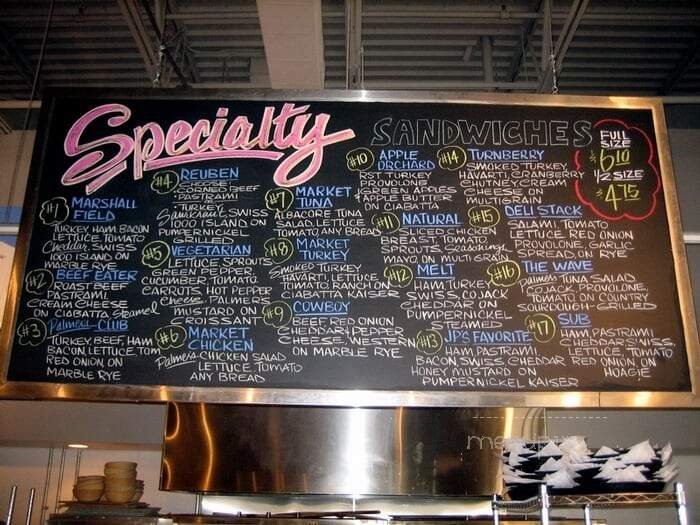 Specialty SANDWICHES
FULL
SIZE
$6.10
1/2 SIZE
$4.75
#1 MARSHALL
FIELD
TURKEY HAM BACON
LETTUCE, TOMATO
Cheddar, SWISS
1000 ISLAND ON
MARBLE RYE
#2 BEEFEATER
ROAST BEEF
PASTRAMI,
CREAM CHEESE
ON CIABATTA Steamed
#3 Palmers CLUB
TURKEY, BEEF, HAM
BACON, LETTUCE, TOM
RED ONION, ON
MARBLE RYE
#4 REUBEN
CHOOSE
CORNED BEEF
PASTRAMI
TURKEY
Saurkraut, SWISS
1000 ISLAND ON
PUMPERNICKEL
GRILLED
#5 VEGETARIAN
LETTUCE SPROUTS
GREEN PEPPER,
CUCUMBER, TOMATO,
CARROTS, HOT PEPPER
Cheese, PALMERS
MUSTARD ON
CROISSANT
#6 MARKET
CHICKEN
Palmers CHICKEN SALAD
LETTUCE, TOMATO
ANY BREAD
#7 MARKET
TUNA
ALBACORE TUNA
SALAD, LETTUCE
TOMATO, ANY BREAD
#8 MARKET
TURKEY
Smoked TURKEY
HAVARTI, LETTUCE
TOMATO, RANCH ON
CIABATTA KAISER
#9 COWBOY
BEEF, RED ONION
CHEDDAR, PEPPER
CHEESE, WESTERN
ON MARBLE RYE
#10 APPLE
ORCHARD
RST TURKEY
PROVOLONE
GREEN APPLES
APPLE BUTTER
ON CIABATTA
#11 NATURAL
SLICED CHICKEN
BREAST, TOMATO,
SPROUTS,
MAYO, ON MULTI GRAIN
#12 MELT
HAM, TURKEY
SWISS, COJACK
CHEDDAR ON
PUMPERNICKEL
STEAMED
#13 JP'S FAVORITE
HAM, PASTRAMI
BACON, SWISS, CHEDDAR
HONEY MUSTARD ON
PUMPERNICKEL KAISER
#14 TURNBERRY
SMOKED TURKEY,
HAVARTI, CRANBERRY
CHUTNEY, CREAM
CHEESE ON
MULTIGRAIN
#15 DELI STACK
SALAMI, TOMATO
LETTUCE, RED ONION
PROVOLONE, GARLIC
SPREAD, ON RYE
#16 THE WAVE
Palmers TUNA SALAD
PROVOLONE,
TOMATO ON COUNTRY
SOURDOUGH - GRILLED
#17 SUB
HAM, PASTRAMI
CHEDDAR, SWISS,
LETTUCE, TOMATO
RED ONION ON
HOAGIE